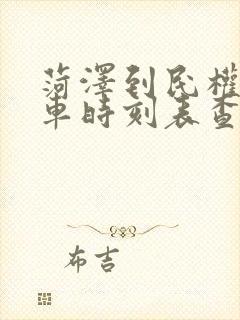 菏澤到民權
車時刻表查
布吉